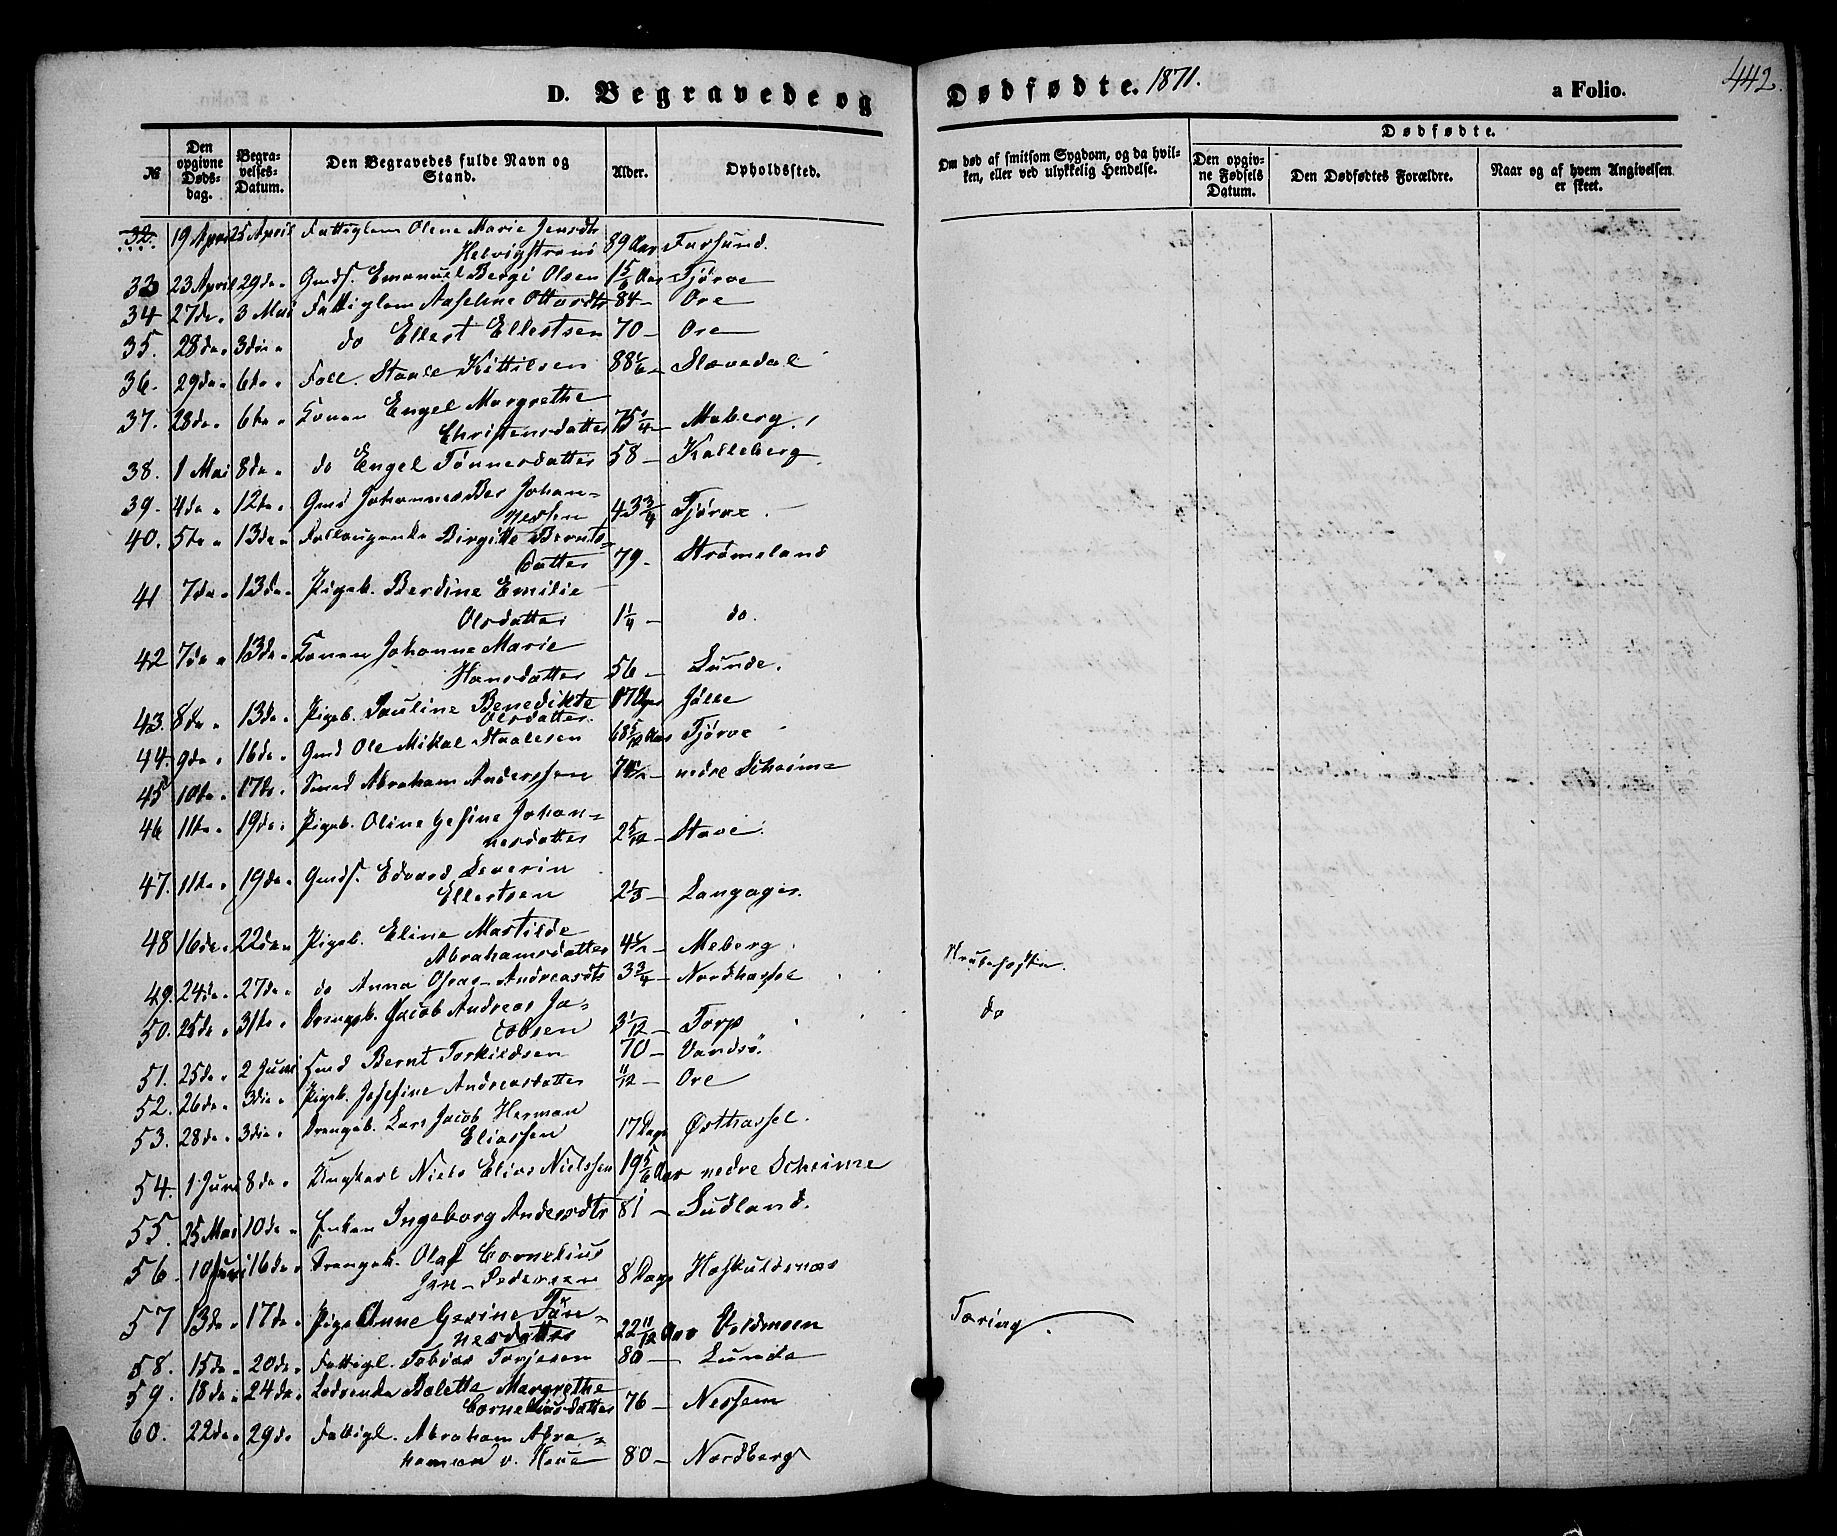 D. Begravede og Dødfødte. 1871. a Folio. 442.
№ Den opgivne Dødsdag. Begravelses-Datum. Den Begravedes fulde Navn og Stand. Alder. Opholdssted. Om død af smitsom Sygdom, og da hvilken, eller ved ulykkelig Hendelse. Dødfødte. Den opgivne Fødsels Datum. Den Dødfødtes Forældre. Naar og af hvem Angivelsen er skeet.
32. 19 April 25 April Fattiglem Olene Marie Jensdtr
89 Aar Farsund.
33 23 April 29 do Gmds. Emanuel Bergi Olsen 1 5/6 Aar Tjørve
34 27 do 3 Mai Fattiglem Aseline Ottersdtr 84 - Ore
35. 28 do 3die do Ellert Ellertsen 70 - Ore
36. 29 do 6te Foll. Staale Kittilsen 88 1/6 - Slævedal
37. 28 do 6te Konen Engel Margrethe
Christensdatter 75 1/4 - Maberg.
38. 1 Mai 8de do Engel Tønnesdatter 58 - Kalleberg
39. 4de 12te Gmd Johannes Ber Johan=
nesen 43 3/4 Tjørve
40. 5te 13de Birgitte Bernts=
datter 79. Strømsland
41 7de 13de Pigeb. Berdine Emilie
Olsdatter 1 1/4 - do.
42 7de 13de Konen Johanne Marie
Hansdatter 56 - Lunde.
43. 8de 13de Pigeb. Pauline Benedikte
Olsdatter. 17 Uger Jølle
44. 9de 16de Gmd Ole Mikal Staalesen 68 5/12 Aar Tjørve
45 10de 17de Smed Abraham Anderssen nedre Scheime
46 11te 19de Pigeb. Oline Gesine Johan=
nesdatter 2 5/12 - Stave.
47. 11te 19de Gmds. Edvard Severin
Ellertsen 2 1/3 - Langager.
48 16de 22de Pigeb. Eline Mathilde
Abrahamsdatter 4 1/2 - Meberg. Strubehoste.
49. 24de 27de do Anna Andreasdtr 3 3/4 - Nordhassel
50. 25de 31te Drengeb. Jacob Andreas Ja=
cobsen 3 1/12 - Torp do
51. 25de 2 Juni Gmd Bernt Torkildsen 70 - Vandsø.
52. 26de 3die Pigeb. Josefine Andreasdatter 11/12 - Ore
53. 28de 3die Drengeb. Lars Jacob Herman
Eliassen 17 Dage Østhassel.
54. 1 Juni 8de Ungkarl Niels Elias Nielssen 19 5/6 Aar nedre Scheime
55. 25 Mai 10de Enken Ingeborg Andersdtr 81 - Sudland.
56. 10 Juni 16de Drengeb. Olaf Cornelius
Pedersen 8 Dage Høskuldsnæs
57 13de 17de Pige Anne Gesine Tøn=
nesdatter 22 11/12 Aar Voldmoen Tæring.
58. 15de 20de Fattigl. Tobias Torjesen 80 - Lunde
59. 18de 24de Lodsenke Bolette Margrethe
Corneliusdatter 76 - Nessem
60. 22de 29de Fattigl. Abraham Abra=
hamsen v. Haue 80 - Nordberg